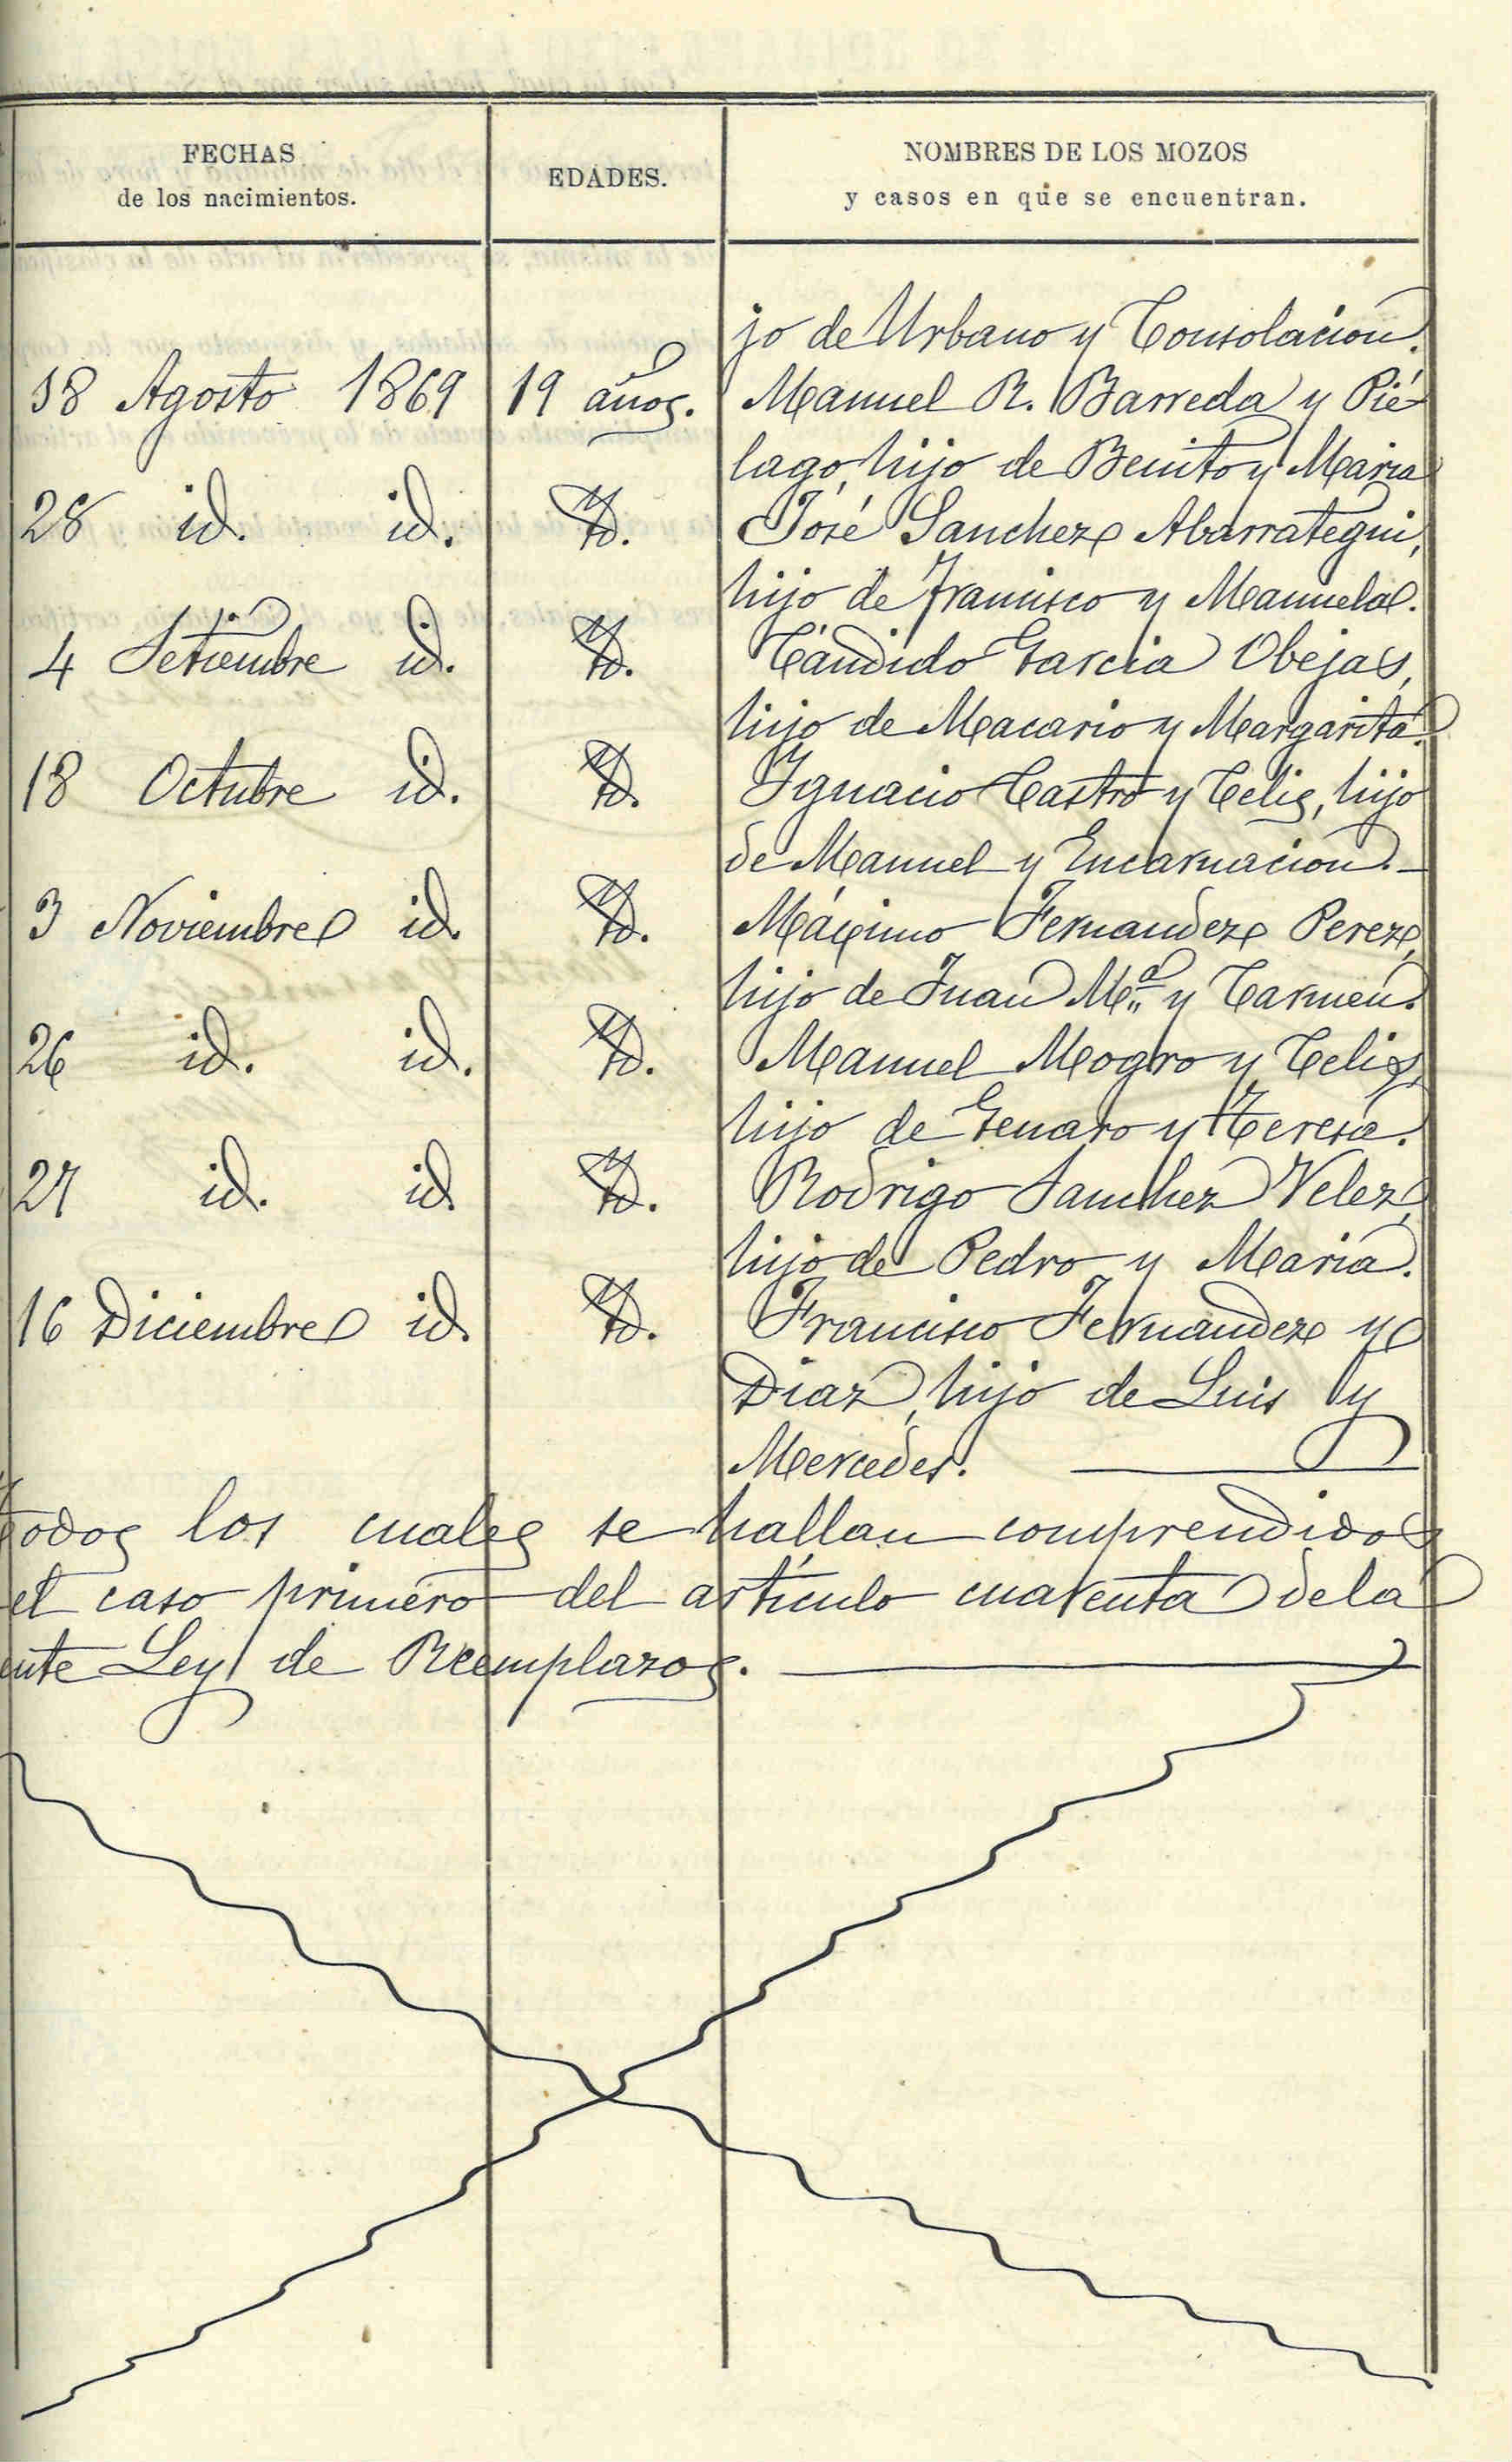 FECHAS
de los nacimientos.
EDADES.
NOMBRES DE LOS MOZOS
y casos en que se encuentran.
jo de Urbano y Consolacion.
18 Agosto 1869 19 años. Manuel R. Barreda y Pié-
lago, hijo de Benito y Maria
28 id. id. Yd. José Sanchez Abarrategui,
hijo de Francisco y Manuela.
4 Setiembre id. Yd. Cándido Garcia Obejas,
hijo de Macario y Margarita.
18 Octubre id. Yd. Ygnacio Castro y Celis, hijo
de Manuel y Encarnacion.
3 Noviembre id. Yd. Máximo Fernandez Perez,
hijo de Juan Mª y Carmen.
26 id. id. Yd. Manuel Mogro y Celis,
hijo de Genaro y Teresa.
27 id. id. Yd. Rodrigo Sanchez Velez,
hijo de Pedro y Maria.
16 Diciembre id. Yd. Francisco Fernandez y
Diaz, hijo de Luis y
Mercedes.
Todos los cuales se hallan comprendidos
el caso primero del artículo cuarenta de la
ente Ley de Reemplazos.